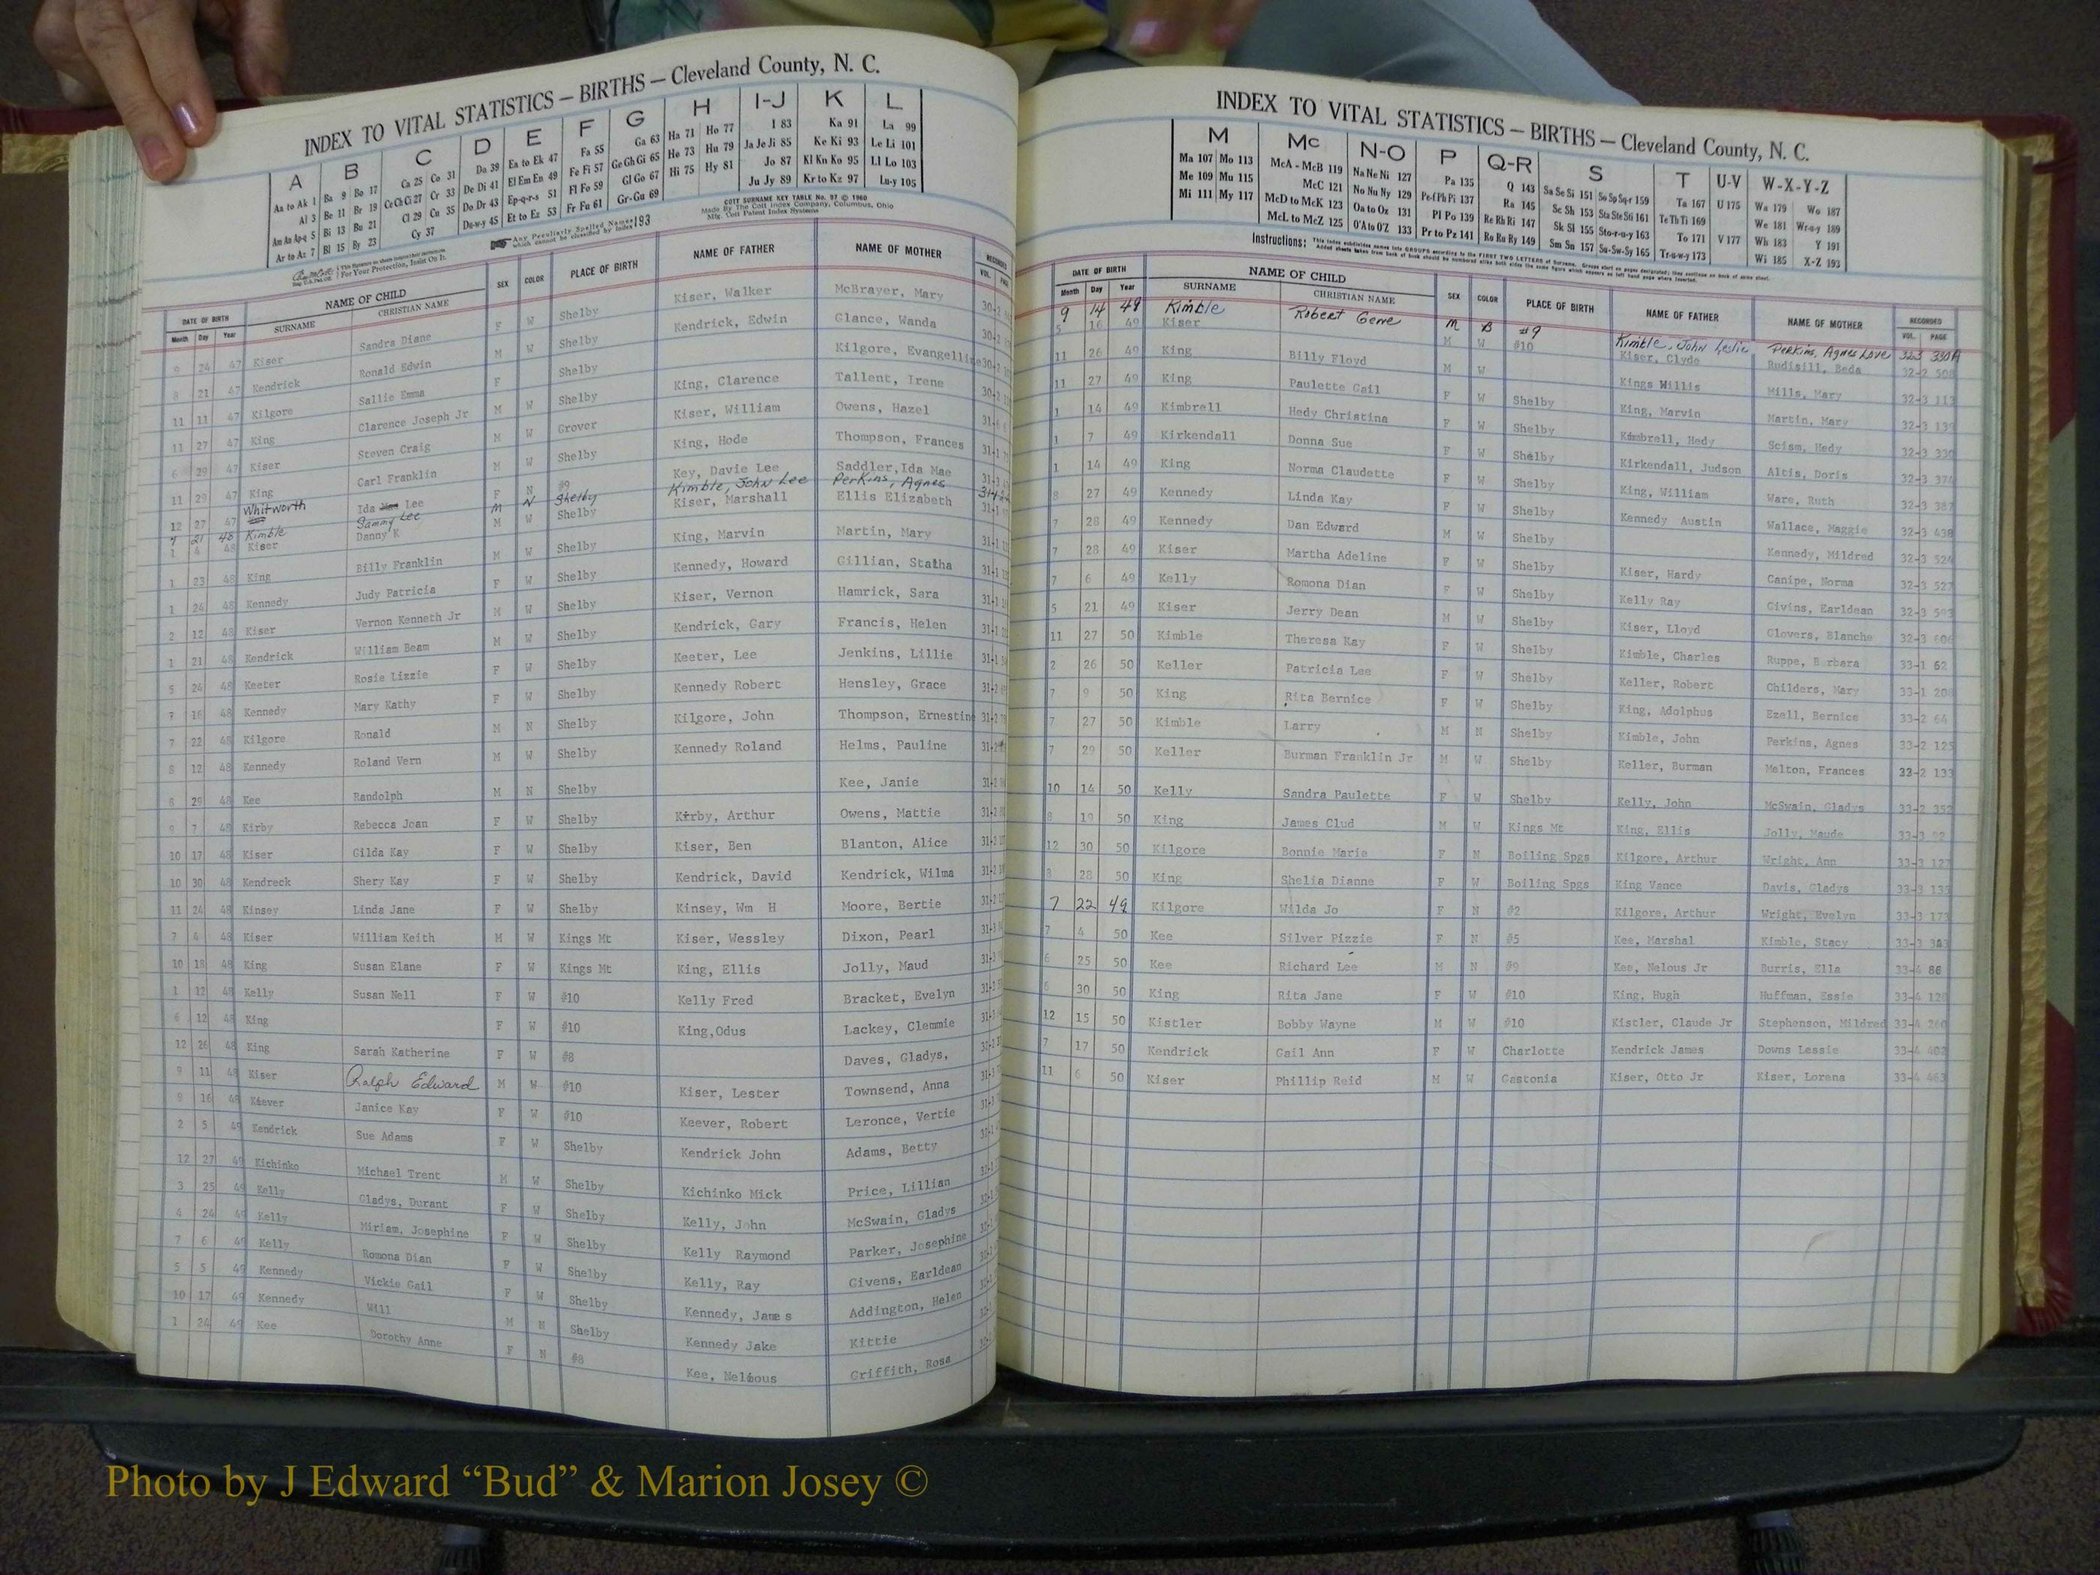 INDEX TO VITAL STATISTICS — BIRTHS — Cleveland County, N. C.
A B C D E F G H I-J K L
Aa to Ak 1 Ba 9 Bo 17 Ca 25 Co 31 Da 39 Ea to Ek 47 Fa 55 Ga 63 Ha 71 Ho 77 I 83 Ka 91 La 99
Al 3 Be 11 Br 19 Ce Ch Ci 27 Cr 33 De Di 41 El Em En 49 Fe Fi 57 Ge Gh Gi 65 He 73 Hu 79 Ja Je Ji 85 Ke Ki 93 Le Li 101
Am An Ap-q 5 Bi 13 Bu 21 Cl 29 Cu 35 Do Dr 43 Ep-q-r-s 51 Fl Fo 59 Gl Go 67 Hi 75 Hy 81 Jo 87 Kl Kn Ko 95 Ll Lo 103
Ar to Az 7 Bl 15 By 23 Cy 37 Du-w-y 45 Et to Ez 53 Fr Fu 61 Gr-Gu 69 Ju Jy 89 Kr to Kz 97 Lu-y 105
COTT SURNAME KEY TABLE No. 97 © 1960
Made by The Cott Index Company, Columbus, Ohio
Mfg. Cott Patent Index Systems
Any Peculiarly Spelled Names which cannot be classified by Index 193
For Your Protection, Insist On It.
DATE OF BIRTH NAME OF CHILD SEX COLOR PLACE OF BIRTH NAME OF FATHER NAME OF MOTHER RECORDED
Month Day Year SURNAME CHRISTIAN NAME VOL. PAGE
24 47 Kiser Sandra Diane F W Shelby Kiser, Walker McBrayer, Mary
8 21 47 Kendrick Ronald Edwin M W Shelby Kendrick, Edwin Glance, Wanda
11 11 47 Kilgore Sallie Emma F Shelby Kilgore, Evangelline
11 27 47 King Clarence Joseph Jr M W Shelby King, Clarence Tallent, Irene
6 29 47 Kiser Steven Craig M W Grover Kiser, William Owens, Hazel
11 29 47 King Carl Franklin M W Shelby King, Hode Thompson, Frances
12 27 47 Whitworth Ida Lee F N #9 Key, Davie Lee Saddler, Ida Mae
9 21 48 Kimble Sammy Lee M N Shelby Kimble, John Lee Perkins, Agnes
1 4 48 Kiser Danny K M W Shelby Kiser, Marshall Ellis Elizabeth
1 23 48 King Billy Franklin M W Shelby King, Marvin Martin, Mary
1 24 48 Kennedy Judy Patricia F W Shelby Kennedy, Howard Gillian, Statha
2 12 48 Kiser Vernon Kenneth Jr M W Shelby Kiser, Vernon Hamrick, Sara
1 21 48 Kendrick William Beam M W Shelby Kendrick, Gary Francis, Helen
5 24 48 Keeter Rosie Lizzie F W Shelby Keeter, Lee Jenkins, Lillie
7 16 48 Kennedy Mary Kathy F W Shelby Kennedy Robert Hensley, Grace
7 22 48 Kilgore Ronald M N Shelby Kilgore, John Thompson, Ernestine
8 12 48 Kennedy Roland Vern M W Shelby Kennedy Roland Helms, Pauline
8 29 48 Kee Randolph M N Shelby Kee, Janie
9 7 48 Kirby Rebecca Joan F W Shelby Kirby, Arthur Owens, Mattie
10 17 48 Kiser Gilda Kay F W Shelby Kiser, Ben Blanton, Alice
10 30 48 Kendreck Shery Kay F W Shelby Kendrick, David Kendrick, Wilma
11 24 48 Kinsey Linda Jane F W Shelby Kinsey, Wm H Moore, Bertie
7 4 48 Kiser William Keith M W Kings Mt Kiser, Wessley Dixon, Pearl
10 18 48 King Susan Elane F W Kings Mt King, Ellis Jolly, Maud
1 12 48 Kelly Susan Nell F W #10 Kelly Fred Bracket, Evelyn
6 12 48 King F W #10 King,Odus Lackey, Clemmie
12 26 48 King Sarah Katherine F W #8 Daves, Gladys,
9 11 48 Kiser Ralph Edward M W #10 Kiser, Lester Townsend, Anna
9 16 48 Keever Janice Kay F W #10 Keever, Robert Leronce, Vertie
2 5 49 Kendrick Sue Adams F W Shelby Kendrick John Adams, Betty
12 27 49 Kichinko Michael Trent M W Shelby Kichinko Mick Price, Lillian
3 25 49 Kelly Gladys, Durant F W Shelby Kelly, John McSwain, Gladys
4 24 49 Kelly Miriam, Josephine F W Shelby Kelly Raymond Parker, Josephine
7 6 49 Kelly Romona Dian F W Shelby Kelly, Ray Givens, Earldean
5 5 49 Kennedy Vickie Gail F W Shelby Kennedy, James Addington, Helen
10 17 49 Kennedy Will M N Shelby Kennedy Jake Kittie
1 24 49 Kee Dorothy Anne F N #8 Kee, Nelious Griffith, Rosa
INDEX TO VITAL STATISTICS — BIRTHS — Cleveland County, N. C.
M Mc N-O P Q-R S T U-V W-X-Y-Z
Ma 107 Mo 113 McA - McB 119 Na Ne Ni 127 Pa 135 Q 143 Sa Se Si 151 So Sp Sq-r 159 Ta 167 U 175 Wa 179 Wo 187
Me 109 Mu 115 McC 121 No Nu Ny 129 Pe-f Ph Pi 137 Ra 145 Sc Sh 153 Sta Ste Sti 161 Te Th Ti 169 We 181 Wr-u-y 189
Mi 111 My 117 McD to McK 123 Oa to Oz 131 Pl Po 139 Re Rh Ri 147 Sk Sl 155 Sto-r-u-y 163 To 171 V 177 Wh 183 Y 191
McL to McZ 125 O'A to O'Z 133 Pr to Pz 141 Ro Ru Ry 149 Sm Sn 157 Su-Sw-Sy 165 Tr-u-w-y 173 Wi 185 X-Z 193
Instructions: This index subdivides names into GROUPS according to the FIRST TWO LETTERS of Surname.
DATE OF BIRTH NAME OF CHILD SEX COLOR PLACE OF BIRTH NAME OF FATHER NAME OF MOTHER RECORDED
Month Day Year SURNAME CHRISTIAN NAME VOL. PAGE
9 14 49 Kimble Robert Gene M B #9 Kimble, John Leslie Perkins, Agnes Love 323 330A
5 16 49 Kiser M W #10 Kiser, Clyde Rudisill, Beda 32-2 508
11 26 49 King Billy Floyd M W Kings Willis Mills, Mary 32-3 113
11 27 49 King Paulette Gail F W Shelby King, Marvin Martin, Mary 32-3 139
1 14 49 Kimbrell Hedy Christina F W Shelby Kimbrell, Hedy Scism, Hedy 32-3 330
1 7 49 Kirkendall Donna Sue F W Shelby Kirkendall, Judson Altis, Doris 32-3 374
1 14 49 King Norma Claudette F W Shelby King, William Ware, Ruth 32-3 387
8 27 49 Kennedy Linda Kay F W Shelby Kennedy Austin Wallace, Maggie 32-3 438
7 28 49 Kennedy Dan Edward M W Shelby Kennedy, Mildred 32-3 524
7 28 49 Kiser Martha Adeline F W Shelby Kiser, Hardy Canipe, Norma 32-3 527
7 6 49 Kelly Romona Dian F W Shelby Kelly Ray Givins, Earldean 32-3 593
5 21 49 Kiser Jerry Dean M W Shelby Kiser, Lloyd Glovers, Blanche 32-3 606
11 27 50 Kimble Theresa Kay F W Shelby Kimble, Charles Ruppe, Barbara 33-1 62
2 26 50 Keller Patricia Lee F W Shelby Keller, Robert Childers, Mary 33-1 208
7 9 50 King Rita Bernice F W Shelby King, Adolphus Ezell, Bernice 33-2 64
7 27 50 Kimble Larry M N Shelby Kimble, John Perkins, Agnes 33-2 125
7 29 50 Keller Burman Franklin Jr M W Shelby Keller, Burman Melton, Frances 33-2 133
10 14 50 Kelly Sandra Paulette F W Shelby Kelly, John McSwain, Gladys 33-2 352
8 19 50 King James Clud M W Kings Mt King, Ellis Jolly, Maude 33-3 52
12 30 50 Kilgore Bonnie Marie F N Boiling Spgs Kilgore, Arthur Wright, Ann 33-3 127
8 28 50 King Shelia Dianne F W Boiling Spgs King Vance Davis, Gladys 33-3 135
7 22 49 Kilgore Wilda Jo F N #2 Kilgore, Arthur Wright, Evelyn 33-3 173
7 4 50 Kee Silver Pizzie F N #5 Kee, Marshal Kimble, Stacy 33-3 343
6 25 50 Kee Richard Lee M N #9 Kee, Nelous Jr Burris, Ella 33-4 86
5 30 50 King Rita Jane F W #10 King, Hugh Huffman, Essie 33-4 128
12 15 50 Kistler Bobby Wayne M W #10 Kistler, Claude Jr Stephenson, Mildred 33-4 260
7 17 50 Kendrick Gail Ann F W Charlotte Kendrick James Downs Lessie 33-4 402
11 6 50 Kiser Phillip Reid M W Gastonia Kiser, Otto Jr Kiser, Lorena 33-4 463
Photo by J Edward “Bud” & Marion Josey ©